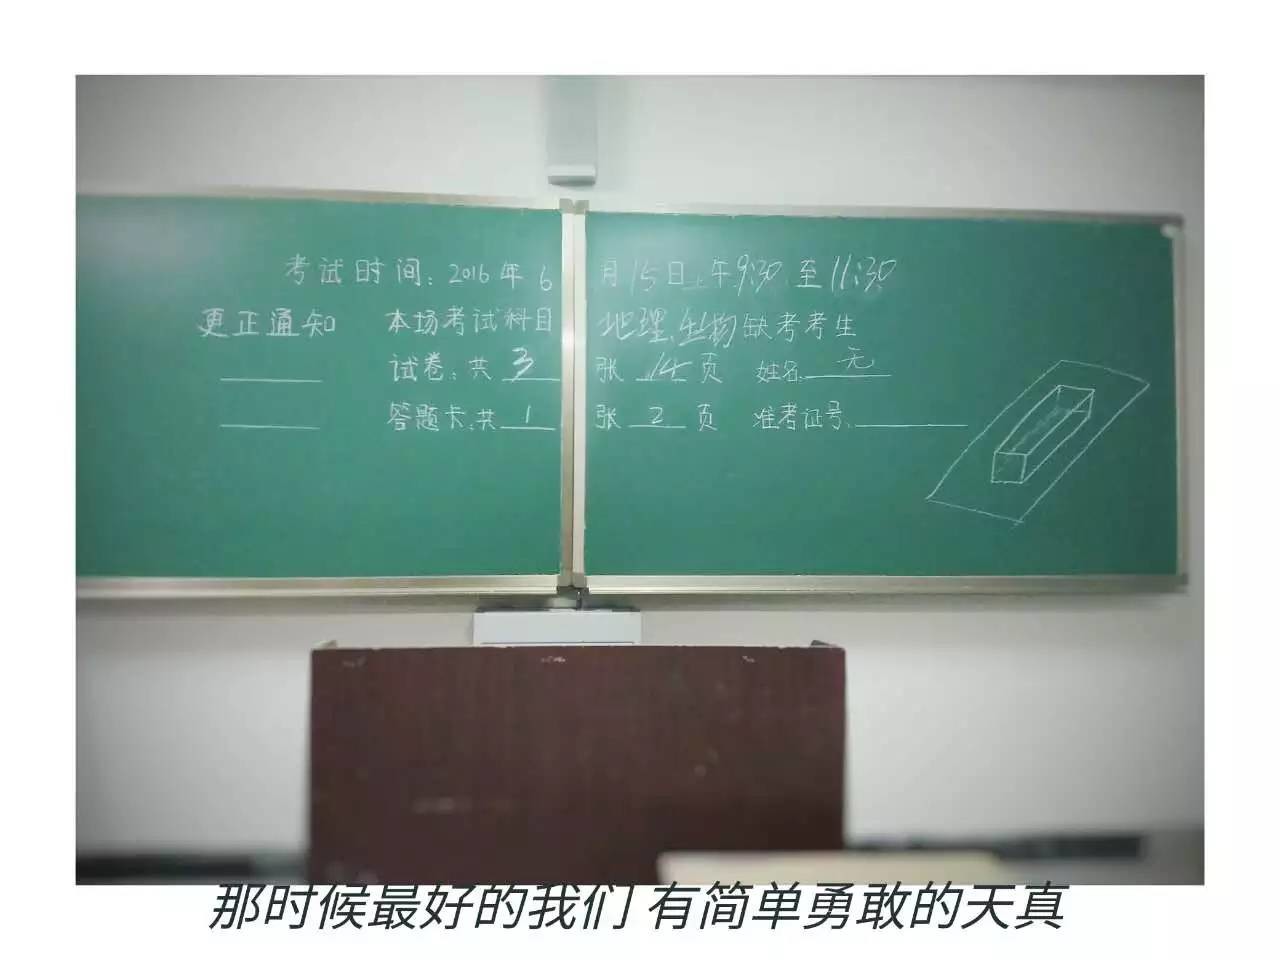 考试时间：2016年6月15日上午9:30至11:30
更正通知 本场考试科目 地理、生物 缺考考生
试卷：共 3 张 14 页 姓名：无
答题卡：共 1 张 2 页 准考证号：
那时候最好的我们 有简单勇敢的天真